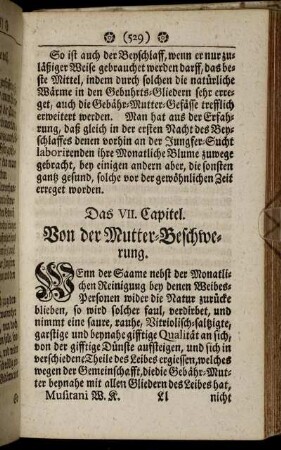 (529)
So ist auch der Beyschlaff, wenn er nur zu-
läßiger Weise gebrauchet werden darff, das be-
ste Mittel, indem durch solchen die natürliche
Wärme in den Gebuhrts-Gliedern sehr erre-
get, auch die Gebähr-Mutter-Gefässe trefflich
erweitert werden. Man hat aus der Erfah-
rung, daß gleich in der ersten Nacht des Bey-
schlaffes denen vorhin an der Jungfer-Sucht
laborirenden ihre Monatliche Blume zuwege
gebracht, bey einigen andern aber, die sonsten
gantz gesund, solche vor der gewöhnlichen Zeit
erreget worden.
Das VII. Capitel.
Von der Mutter-Beschwe-
rung.
WEnn der Saame nebst der Monatli-
chen Reinigung bey denen Weibes-
Personen wider die Natur zurücke
blieben, so wird solcher faul, verdirbet, und
nimmt eine saure, rauhe, Vitriolisch-saltzigte,
garstige und beynahe gifftige Qualität an sich,
von der gifftige Dünste aufsteigen, und sich in
verschiedene Theile des Leibes ergiessen, welches
wegen der Gemeinschafft, die die Gebähr-Mut-
ter beynahe mit allen Gliedern des Leibes hat,
Musitani W. K. Ll nicht